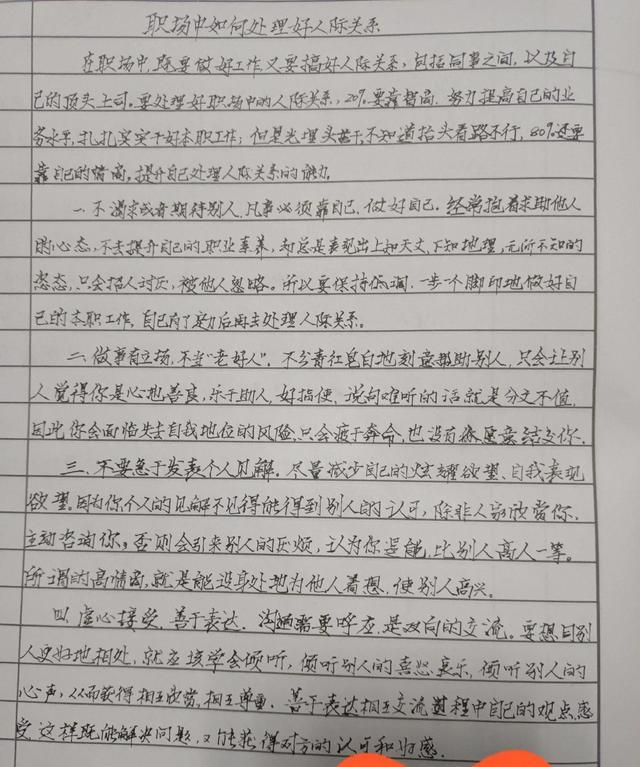 职场中如何处理好人际关系
在职场中,既要做好工作又要搞好人际关系,包括同事之间,以及自
己的顶头上司。要处理好职场中的人际关系,20%要靠智商,努力提高自己的业
务水平,扎扎实实干好本职工作;但是光埋头苦干,不知道抬头看路不行,80%还要
靠自己的情商,提升自己处理人际关系的能力
一、不渴求或者期待别人,凡事必须靠自己,做好自己。经常抱着求助他人
的心态,不去提升自己的职业素养,却总是表现出上知天文、下知地理,无所不知的
态,只会招人讨厌,被他人忽略。所以要保持低调,一步一个脚印地做好自
己的本职工作,自己有了定力后再去处理人际关系。
二、做事有立场,不当"老好人"。不分青红皂白地刻意帮助别人,只会让别
人觉得你是心地善良,乐于助人,好指使,说句难听的话就是分文不值,
因此你会面临失去自我地位的风险,只会疲于奔命,也没有愿意结交你.
三、不要急于发表个人见解。尽量减少自己的炫耀欲望、自我表现
欲望,因为你个人的见解不见得能得到别人的认可,除非人家欣赏你,
主动咨询你。否则会引来别人的厌烦,认为你逞能,比别人高人一等。
所谓的高情商,就是能设身处地为他人着想,使别人高兴。
四、虚心接受,善于表达.沟通需要呼应,是双向的交流。要想同别
人更好地相处,就应该学会倾听,倾听别人的喜怒哀乐,倾听别人的
心声,从而获得相互欣赏,相互尊重.善于表达相互交流过程中自己的观点感
受,这样既能解决问题,又能获得对方的认可和归感.